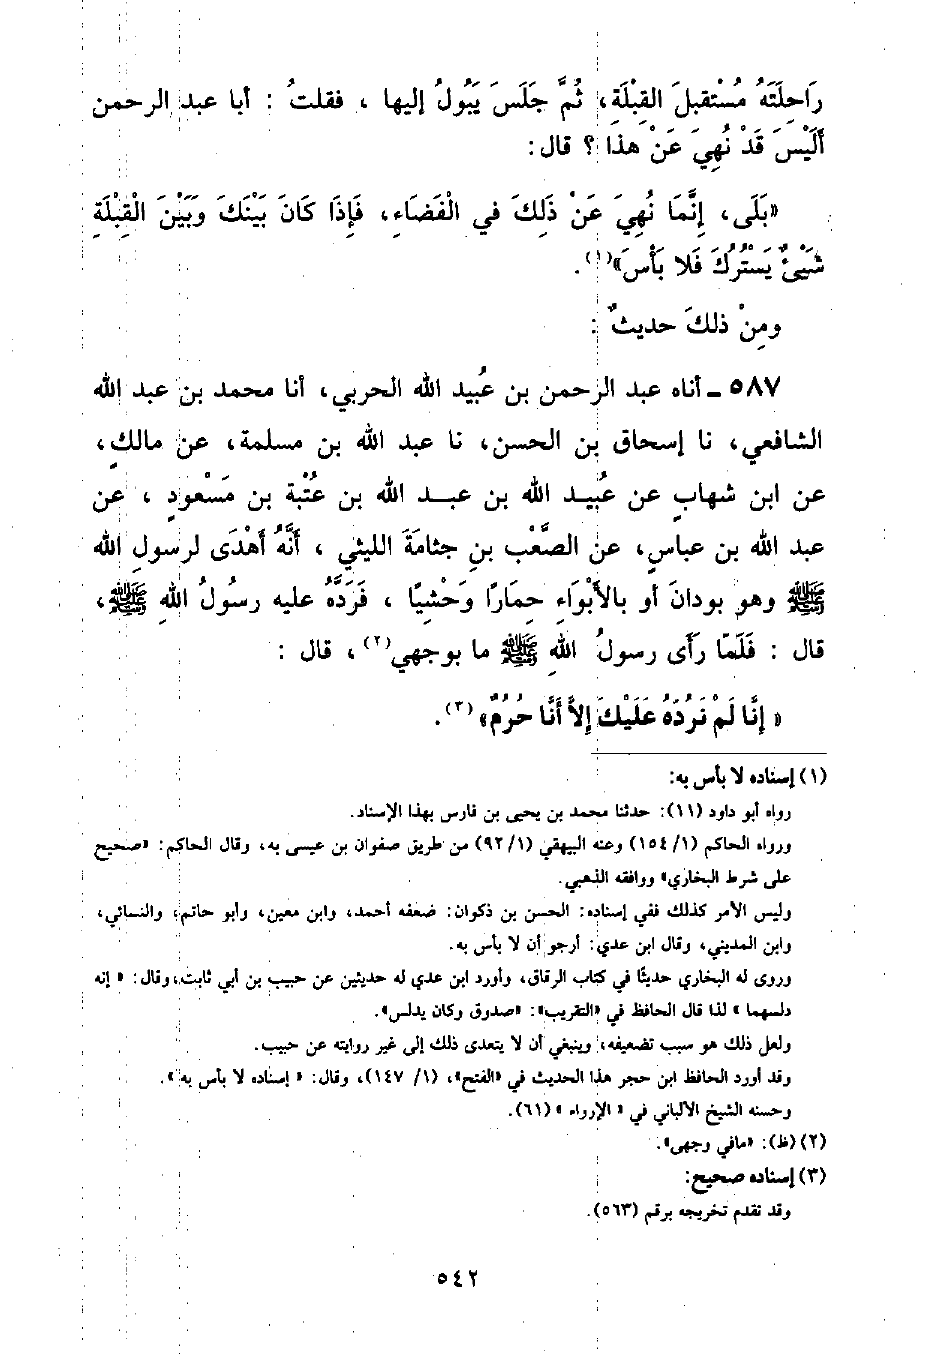 رَاحِلَتَهُ مُسْتقبلَ القِبْلَةِ، ثُمَّ جَلَسَ يَبُولُ إليها ، فقلتُ : أبا عبد الرحمن
أَلَيْسَ قَدْ نُهِيَ عَنْ هذا ؟ قال:
«بَلَى، إِنَّمَا نُهِيَ عَنْ ذَلِكَ في الْفَضَاءِ، فَإِذَا كَانَ بَيْنَكَ وَبَيْنَ الْقِبْلَةِ
شَيْئٌ يَسْتُرُكَ فَلا بَأْسَ»(١).
ومِنْ ذلكَ حديثٌ :
٥٨٧ ـ أناه عبد الرحمن بن عُبيد الله الحربي، أنا محمد بن عبد الله
الشافعي، نا إسحاق بن الحسن، نا عبد الله بن مسلمة، عن مالكٍ،
عن ابن شهابٍ عن عُبيد الله بن عبد الله بن عُتْبة بن مَسْعودٍ ، عن
عبد الله بن عباسٍ، عن الصَّعْب بنِ جثامَةَ الليثي ، أَنَّهُ أَهْدَى لرسولِ الله
ﷺ وهو بودانَ أو بالأَبْوَاءِ حِمَارًا وَحْشيًا ، فَرَدَّهُ عليه رسُولُ اللهِ ﷺ،
قال : فَلَمّا رَأى رسولُ اللهِ ﷺ ما بوجهي(٢) ، قال :
« إِنَّا لَمْ نَرُدّهُ عَلَيْكَ إلاَّ أَنَّا حُرُمٌ»(٣).
(١) إسناده لا بأس به:
رواه أبو داود (١١): حدثنا محمد بن يحيى بن فارس بهذا الإسناد.
ورواه الحاكم (١/ ١٥٤) وعنه البيهقي (١/ ٩٢) من طريق صفوان بن عيسى به، وقال الحاكم: «صحيح
على شرط البخاري» ووافقه الذهبي.
وليس الأمر كذلك ففي إسناده: الحسن بن ذكوان: ضعفه أحمد، وابن معين، وأبو حاتم، والنسائي،
وابن المديني، وقال ابن عدي: أرجو أن لا بأس به.
وروى له البخاري حديثًا في كتاب الرقاق، وأورد ابن عدي له حديثين عن حبيب بن أبي ثابت، وقال: « إنه
دلسهما » لذا قال الحافظ في «التقريب»: «صدوق وكان يدلس».
ولعل ذلك هو سبب تضعيفه، وينبغي أن لا يتعدى ذلك إلى غير روايته عن حبيب.
وقد أورد الحافظ ابن حجر هذا الحديث في «الفتح»، (١/ ١٤٧)، وقال: « إسناده لا بأس به».
وحسنه الشيخ الألباني في « الإرواء » (٦١).
(٢) (ظ): «مافي وجهي».
(٣) إسناده صحيح:
وقد تقدم تخريجه برقم (٥٦٣).
٥٤٢